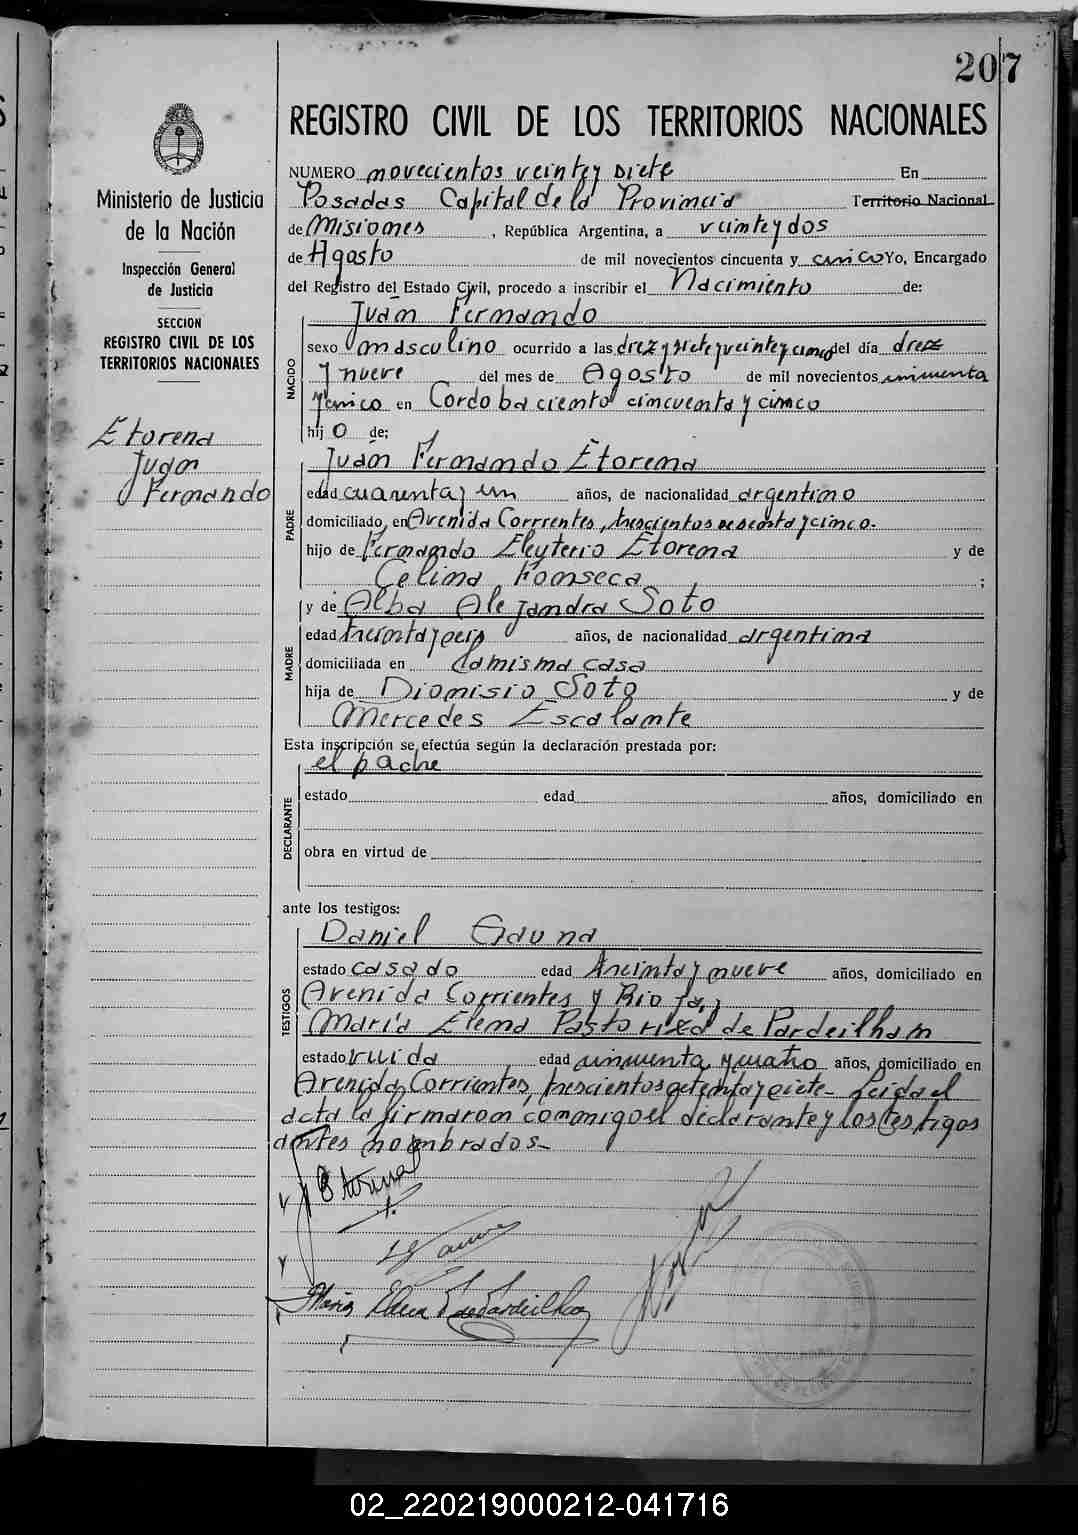 207
REGISTRO CIVIL DE LOS TERRITORIOS NACIONALES
Ministerio de Justicia
de la Nación
Inspección General
de Justicia
SECCION
REGISTRO CIVIL DE LOS
TERRITORIOS NACIONALES
Etorena
Juan
Fernando
NUMERO novecientos veinte y siete En
Posadas Capital de la Provincia Territorio Nacional
de Misiones, República Argentina, a veinte y dos
de Agosto de mil novecientos cincuenta y cinco Yo, Encargado
del Registro del Estado Civil, procedo a inscribir el Nacimiento de:
NACIDO
Juan Fernando
sexo masculino ocurrido a las diez y siete y veinte y cinco del día diez
y nueve del mes de Agosto de mil novecientos cincuenta
y cinco en Cordoba ciento cincuenta y cinco
hijo de:
PADRE
Juan Fernando Etorena
edad cuarenta y un años, de nacionalidad argentino
domiciliado en Avenida Corrientes, trescientos sesenta y cinco.
hijo de Fernando Eleyterio Etorena y de
Celina Fonseca ;
MADRE
y de Alba Alejandra Soto
edad treinta y seis años, de nacionalidad argentina
domiciliada en la misma casa
hija de Dionisio Soto y de
Mercedes Escalante
Esta inscripción se efectúa según la declaración prestada por:
DECLARANTE
el padre
estado edad años, domiciliado en
obra en virtud de
ante los testigos:
TESTIGOS
Daniel Gauna
estado casado edad treinta y nueve años, domiciliado en
Avenida Corrientes y Rioja, y
Maria Elena Pastoriza de Pardeilham
estado viuda edad cincuenta y cuatro años, domiciliado en
Avenida Corrientes, trescientos setenta y siete- Leida el
acta la firmaron conmigo el declarante y los testigos
antes nombrados-
J Etorena
Maria Elena P de Pardeilham
02_220219000212-041716